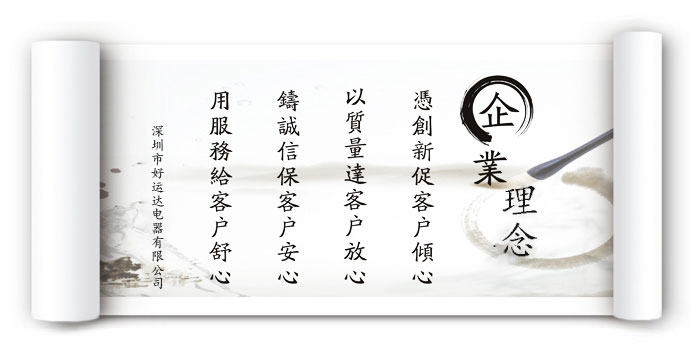 企業理念
憑創新促客户傾心
以質量達客户放心
鑄誠信保客户安心
用服務給客户舒心
深圳市好运达电器有限公司